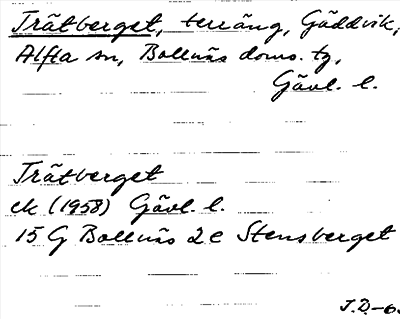 Trätberget, terräng, Gäddvik,
Alfta sn, Bollnäs doms. tg,
Gävl. l.
Trätberget
ek (1958) Gävl. l.
15 G Bollnäs 2 e Stensberget
J.D-6.